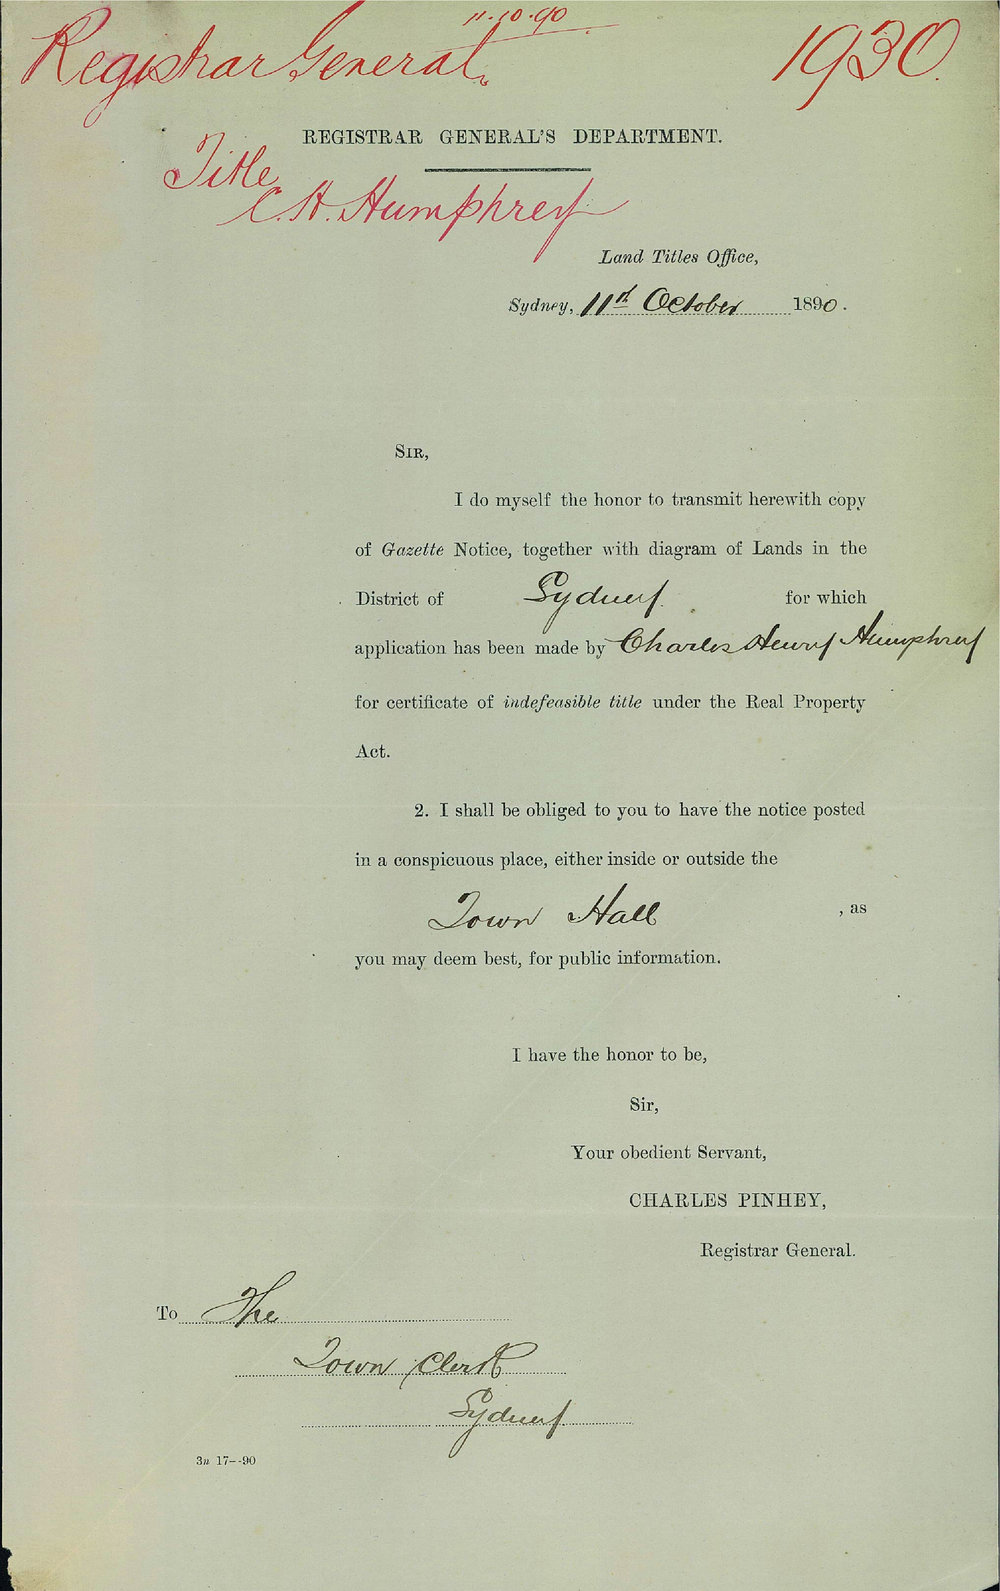 11.10.90
Registrar General. 1930.
REGISTRAR GENERAL'S DEPARTMENT.
Title
C. H. Humphrey
Land Titles Office,
Sydney, 11th October 1890.
SIR,
I do myself the honor to transmit herewith copy
of Gazette Notice, together with diagram of Lands in the
District of Sydney. for which
application has been made by Charles Henry Humphrey
for certificate of indefeasible title under the Real Property
Act.
2. I shall be obliged to you to have the notice posted
in a conspicuous place, either inside or outside the
Town Hall , as
you may deem best, for public information.
I have the honor to be,
Sir,
Your obedient Servant,
CHARLES PINHEY,
Registrar General.
To The
Town Clerk
Sydney
3n 17--90